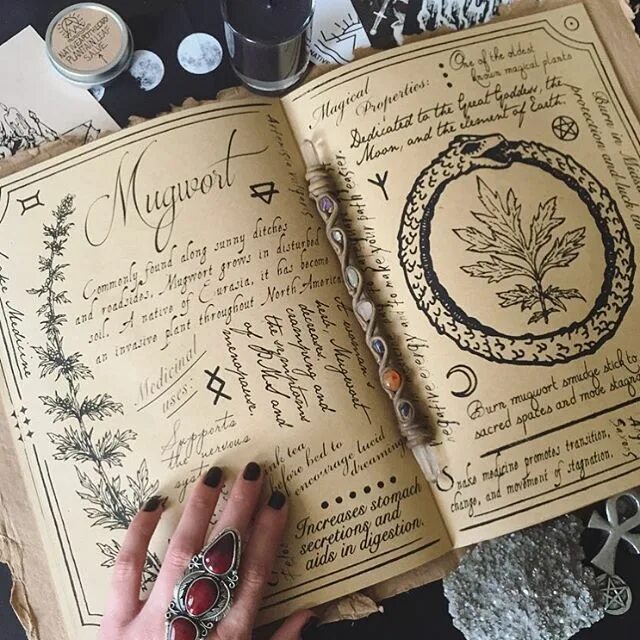 NATURAL APOTHECARY
PLANTAIN LEAF
SALVE
Mugwort
Commonly found along sunny ditches
and roadsides, Mugwort grows in disturbed
soil. A native of Eurasia, it has become
an invasive plant throughout North America
Medicinal
uses:
Supports
the nervous
Mugwort
decreases
cramping and
the symptoms
of PMS and
menopause.
tea
before bed to
encourage lucid
dreaming
Increases stomach
secretions and
aids in digestion.
Magical
Properties:
One of the oldest
known magical plants
Dedicated to the Great Goddess, the
Moon, and the element of Earth.
Burn in
protection and luck
Burn mugwort smudge stick to
sacred spaces and move
Snake medicine promotes transition,
change, and movement of stagnation.